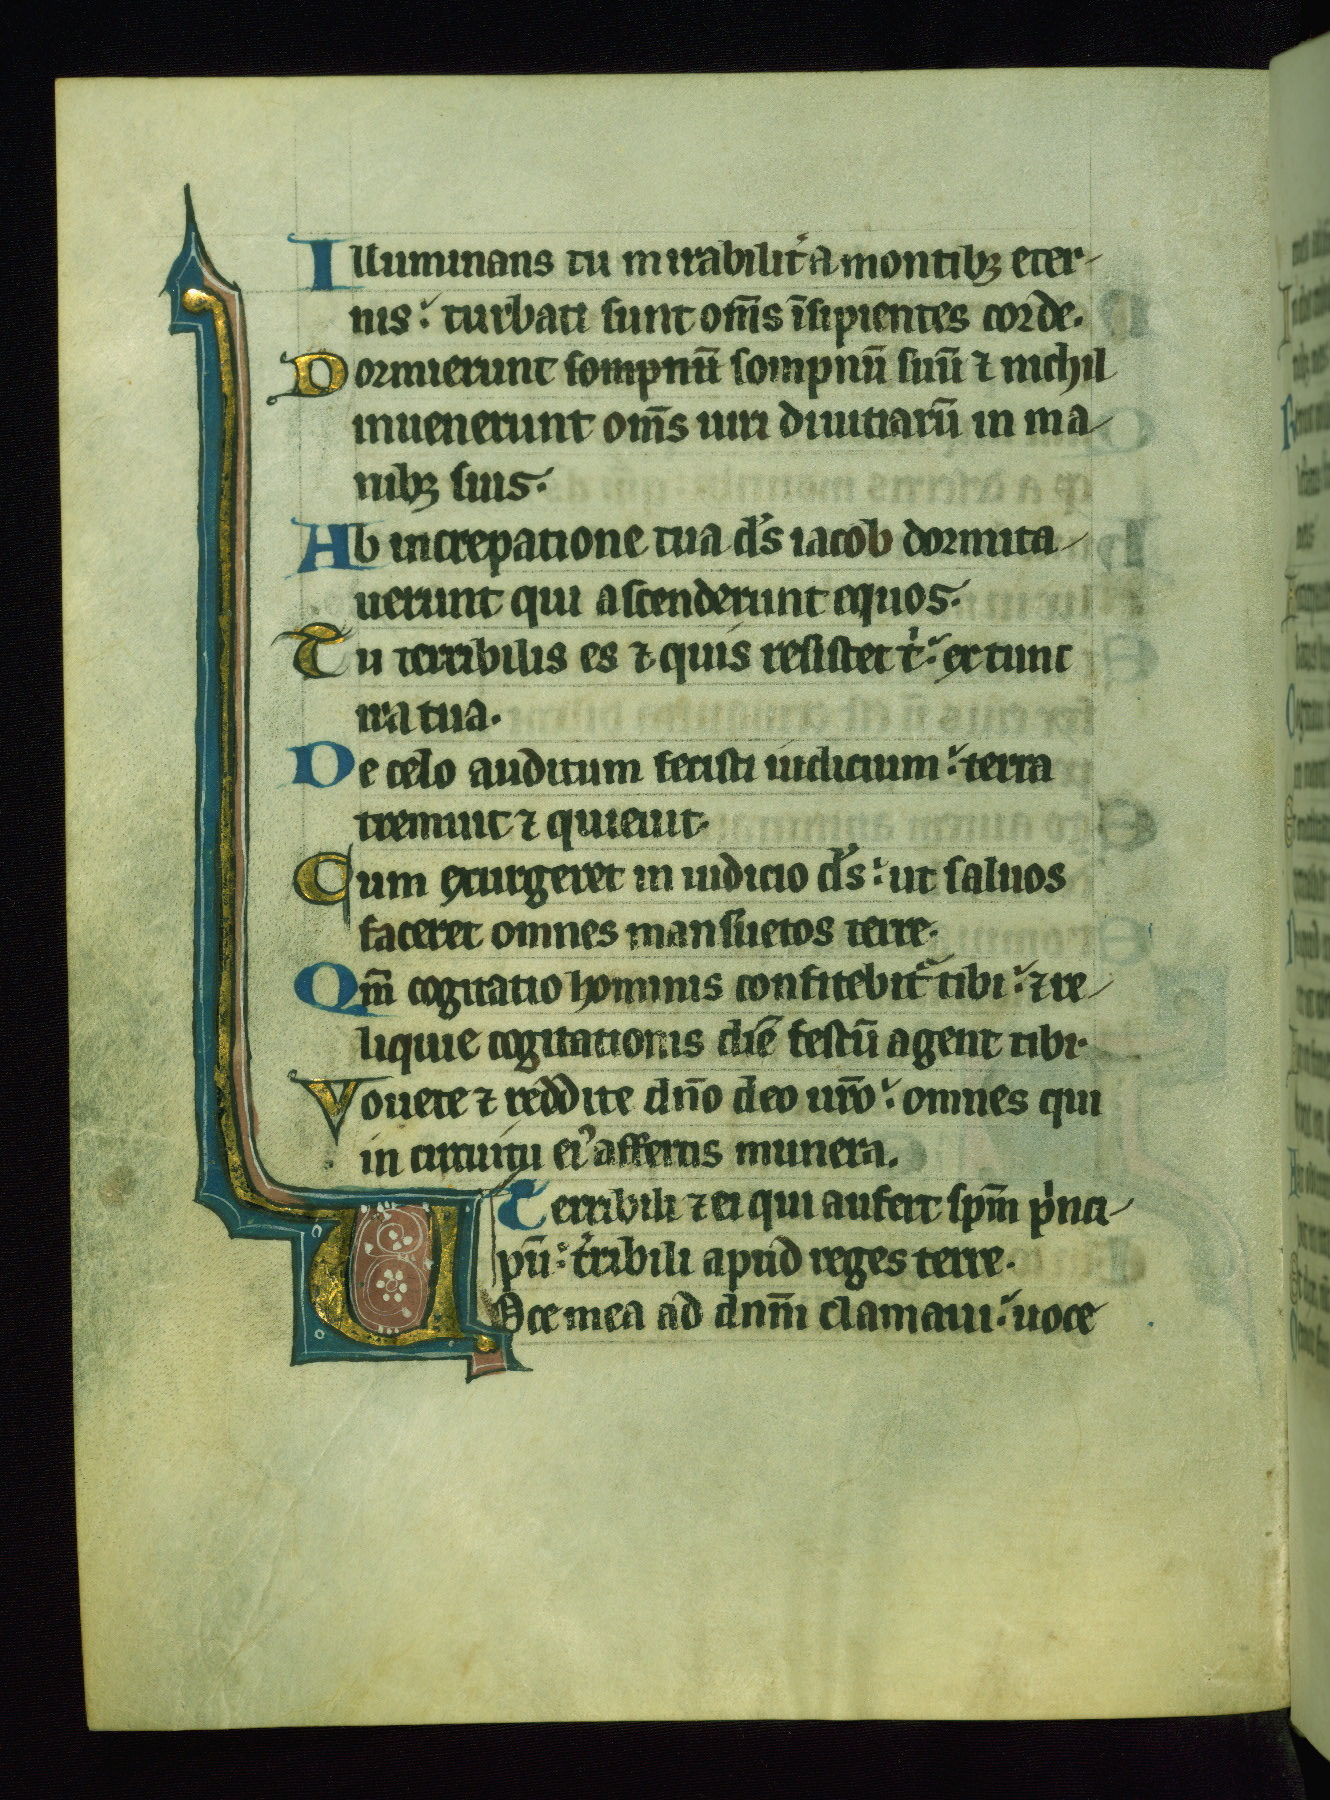 Illuminans tu mirabilit̉ a montibꝫ eter-
nis: turbati sunt om̄s īsipientes corde.
Dormierunt sompnū sompnū suū ⁊ nichil
inuenerunt om̄s uiri diuitiarū in ma-
nibꝫ suis.
Ab increpatione tua d̓s iacob dormita-
uerunt qui ascenderunt equos.
Tu terribilis es ⁊ quis resistet t̓: ex tunc
ira tua.
De celo auditum fecisti iudicium: terra
tremuit ⁊ quieuit.
Cum exurgeret in iudicio d̓s: ut saluos
faceret omnes mansuetos terre.
Qm̄ cogitatio hominis confitebit̉ tibi: ⁊ re-
liquie cogitationis diē festū agent tibi.
Vouete ⁊ reddite dn̄o deo ur̄o: omnes qui
in circuitu ei᾿ affertis munera.
Terribili ⁊ ei qui aufert sp̄m p̓nci-
pū: t̓ribili apud reges terre.
Uoce mea ad dn̄m clamaui: uoce